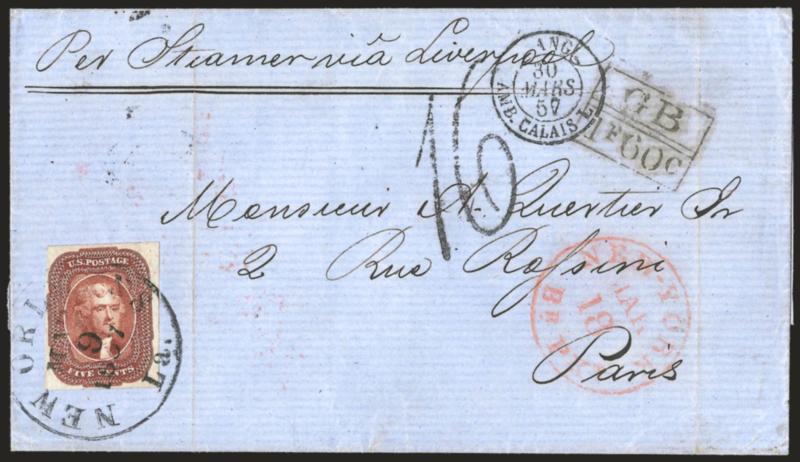 Per Steamer viâ Liverpool
ANGL.
30
MARS
57
AMB. CALAIS
GB
1F60C
16
Monsieur A. Quertier Jr
2 Rue Rossini
Paris
U.S. POSTAGE
FIVE CENTS
NEW ORL
9
La.
NEW-YORK
MAR
18
Br. PKT